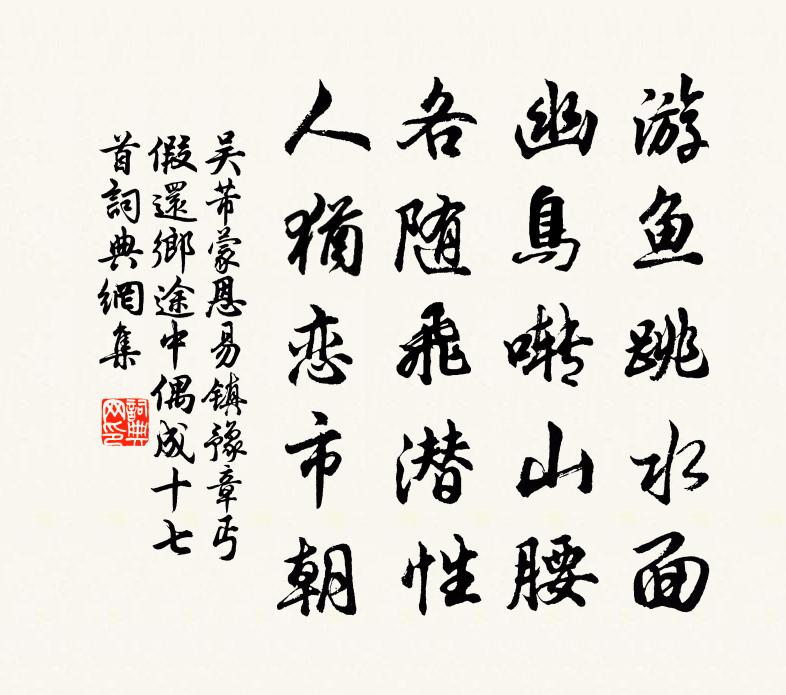 游鱼跳水面
幽鳥啭山腰
各随飛潜性
人猶恋市朝
吴芾蒙恩易镇豫章丐
假還鄉途中偶成十七
首詞典網集
詞典
网印